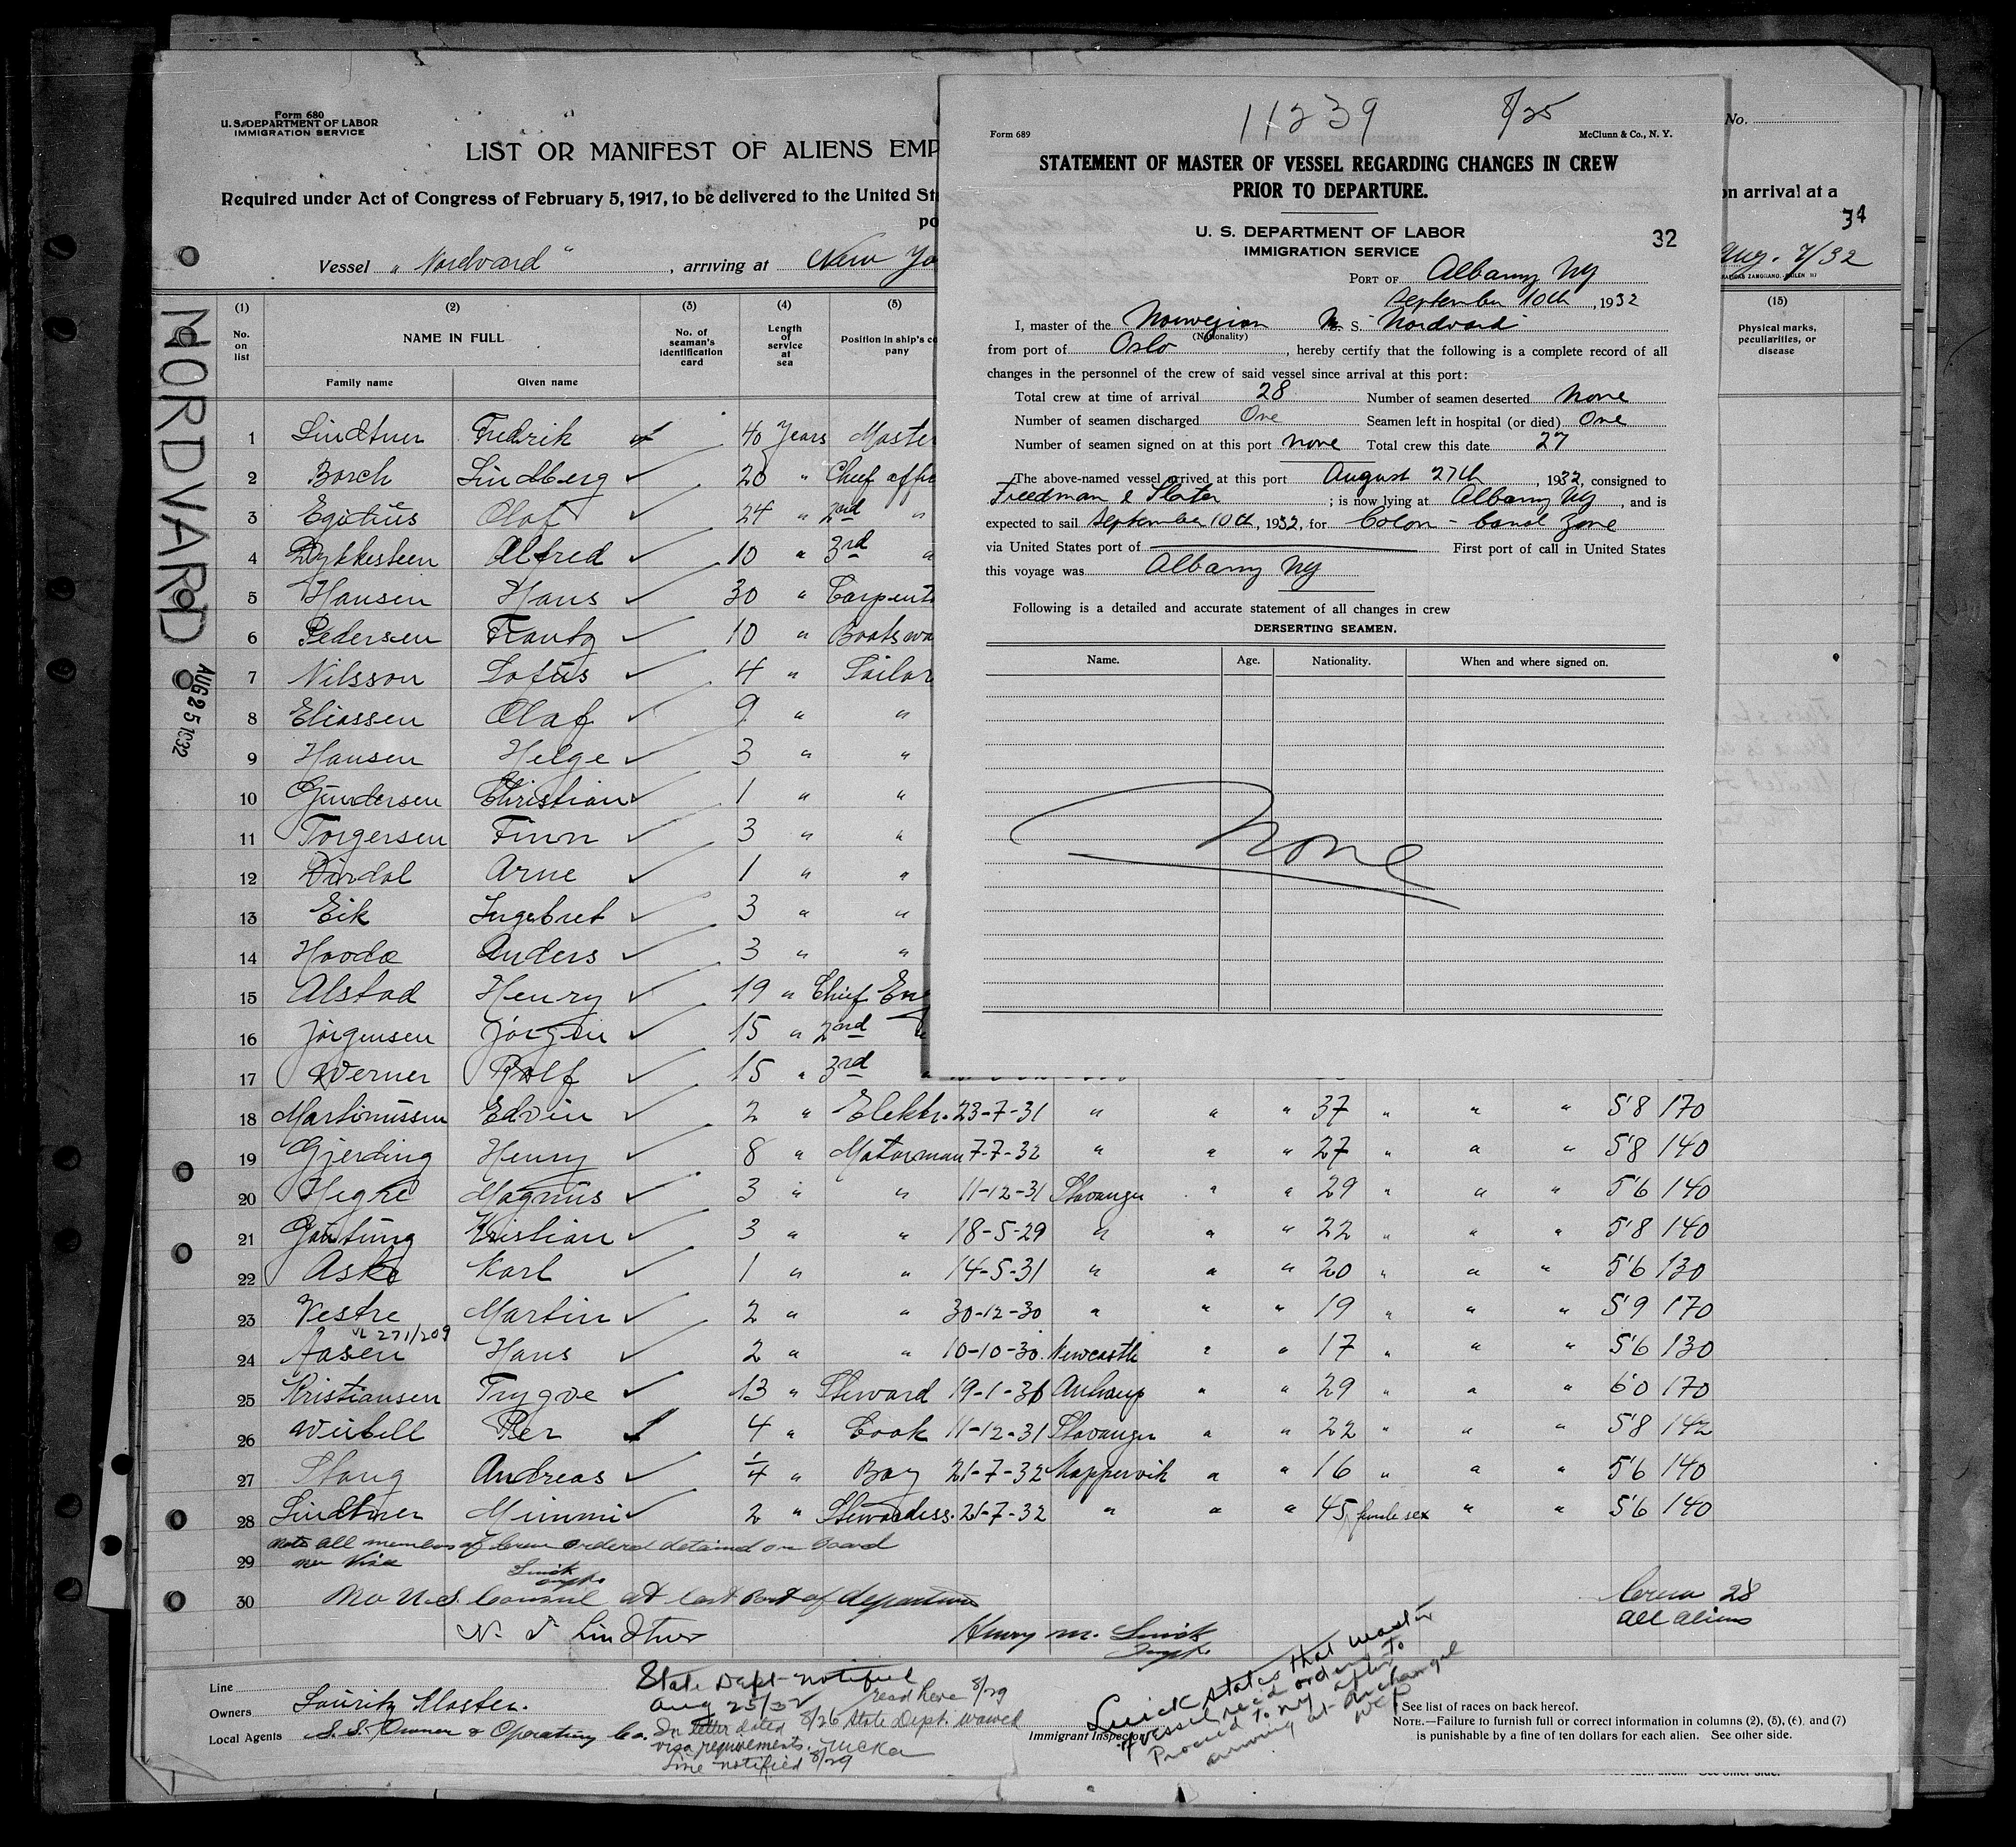 Form 680
U. S. DEPARTMENT OF LABOR
IMMIGRATION SERVICE
LIST OR MANIFEST OF ALIENS EMP
Required under Act of Congress of February 5, 1917, to be delivered to the United St
po
Vessel "Nordvard", arriving at New Yo
No.
on arrival at a
34
Aug. 7/32
NORDVARD
AUG 25 1932
(1) (2) (3) (4) (5) (15)
No. on list
NAME IN FULL
Family name Given name
No. of seaman's identification card
Length of service at sea
Position in ship's co
pany
Physical marks, peculiarities, or disease
1 Lindtner Fredrik 40 Years Maste
2 Borch Lindberg 20 " Chief offic
3 Egidius Olaf 24 " 2nd "
4 Dykkesteen Alfred 10 " 3rd "
5 Hansen Hans 30 " Carpent
6 Pedersen Frantz 10 " Boatswa
7 Nilsson Lofus 4 " Sailor
8 Eliassen Olaf 9 " "
9 Hansen Helge 3 " "
10 Gundersen Christian 1 " "
11 Torgersen Finn 3 " "
12 Dirdal Arne 1 " "
13 Eik Ingebret 3 " "
14 Hooda Anders 3 " "
15 Alstad Henry 19 " Chief En
16 Jørgensen Jørgen 15 " 2nd "
17 Werner Rolf 15 " 3rd
18 Martinussen Edvin 2 " Elektr. 23-7-31 " " " 37 " " " 5'8 170
19 Gjerding Henry 8 " Motorman 7-7-32 " " " 27 " " " 5'8 140
20 Hegre Magnus 3 " " 11-12-31 Stavanger " " 29 " " " 5'6 140
21 Gautung Kristian 3 " " 18-5-29 " " " 22 " " " 5'8 140
22 Aske Karl 1 " " 14-5-31 " " " 20 " " " 5'6 130
23 Vestre Martin 2 " " 30-12-30 " " " 19 " " " 5'9 170
271/209
24 Aasen Hans 2 " " 10-10-30 Newcastle " " 17 " " " 5'6 130
25 Kristiansen Trygve 13 " Steward 19-1-31 Antwerp " " 29 " " " 6'0 170
26 Weibell Per 4 " Cook 11-12-31 Stavanger " " 22 " " " 5'8 142
27 Stang Andreas 1/4 " Boy 21-7-32 Koppervik " " 16 " " " 5'6 140
28 Lindtner Mimmi 2 " Stewardess. 21-7-32 " " " 45 female sex " " 5'6 140
note all members of crew ordered detained on board
29 no visa
Lusk
30 No U.S. Consul at last Port of departure
Crew 28
all aliens
Lindtner
Henry M. Lusk
Line
Owners Lauritz Kloster.
Local Agents S.S. Owner & Operating Co.
State Dept notified
Aug 25/32
read here 8/29
In letter dated 8/26 State Dept. waived
visa requirements.
Line notified 8/29
Immigrant Inspector
Lusick states that master
of vessel rec'd orders to
Proceed to NY after
arriving at Archangel
See list of races on back hereof.
NOTE.—Failure to furnish full or correct information in columns (2), (5), (6) and (7)
is punishable by a fine of ten dollars for each alien. See other side.
11239 8/25
Form 689
McClunn & Co., N. Y.
STATEMENT OF MASTER OF VESSEL REGARDING CHANGES IN CREW
PRIOR TO DEPARTURE.
U. S. DEPARTMENT OF LABOR
IMMIGRATION SERVICE
32
PORT OF Albany NY
September 10th, 1932
I, master of the Norwegian M. S. "Nordvard"
(Nationality)
from port of Oslo, hereby certify that the following is a complete record of all
changes in the personnel of the crew of said vessel since arrival at this port:
Total crew at time of arrival 28 Number of seamen deserted None
Number of seamen discharged One Seamen left in hospital (or died) One
Number of seamen signed on at this port none Total crew this date 27
The above-named vessel arrived at this port August 27th, 1932, consigned to
Freedman & Slater; is now lying at Albany NY, and is
expected to sail September 10th, 1932, for Colon - Canal Zone
via United States port of First port of call in United States
this voyage was Albany NY
Following is a detailed and accurate statement of all changes in crew
DERSERTING SEAMEN.
Name. Age. Nationality. When and where signed on.
None